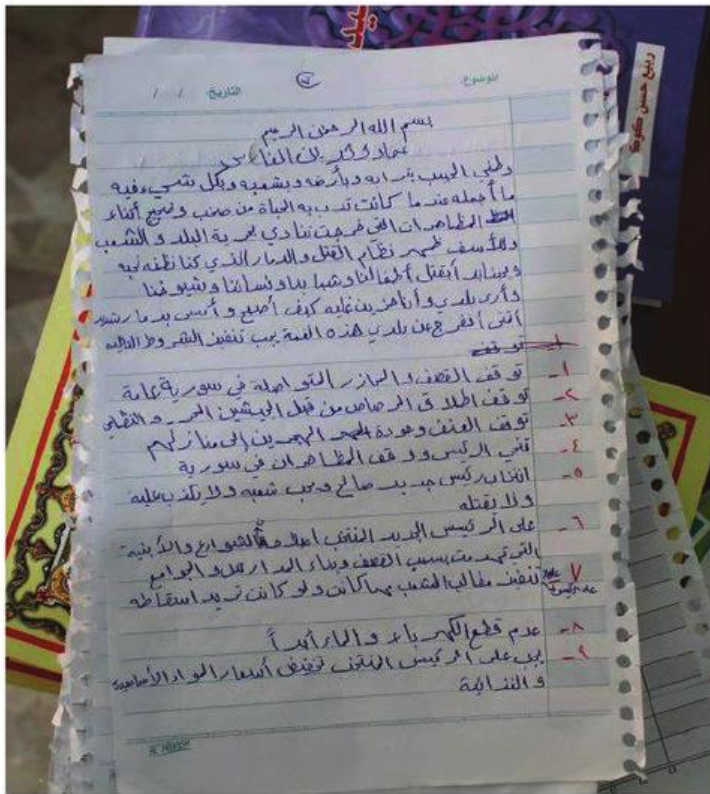 ربيع حسن كوكة
الموضوع:
التاريخ: / /
بسم الله الرحمن الرحيم
عماد
وطني الحبيب بترابه وبأرضه وبشعبه وبكل شيء فيه
ما أجمله عندما كانت تدب به الحياة من صخب وضجيج أثناء
المظاهرات التي خرجت تنادي بحرية البلد والشعب
وللأسف ظهر نظام القتل والدمار الذي كنا نظنه يحبه
أطفالنا وشبابنا ونساءنا وشيوخنا
وأرى بلدي وأنا حزين عليه كيف أصبح و
أتمنى أن تفرج عن بلدي هذه الغمة يجب تنفيذ الشروط التالية
توقف
١- توقف القصف والمجازر المتواصلة في سورية عامة
٢- توقف اطلاق الرصاص من قبل الجيشين الحر والنظامي
٣- توقف العنف وعودة المهجرين إلى منازلهم
٤- تنحي الرئيس ووقف المظاهرات في سورية
٥- انتخاب رئيس جديد صالح ويحب شعبه ولا يكذب عليه
ولا يقتله
٦- على الرئيس الجديد المنتخب اصلاح الشوارع والأبنية
التي تهدمت بسبب القصف وبناء المدارس والجوامع
٧ تنفيذ مطالب الشعب مهما كانت ولو كانت تريد اسقاطه
٨- عدم قطع الكهرباء والماء أبداً
٩- يجب على الرئيس المنتخب تخفيض أسعار المواد الأساسية
والغذائية